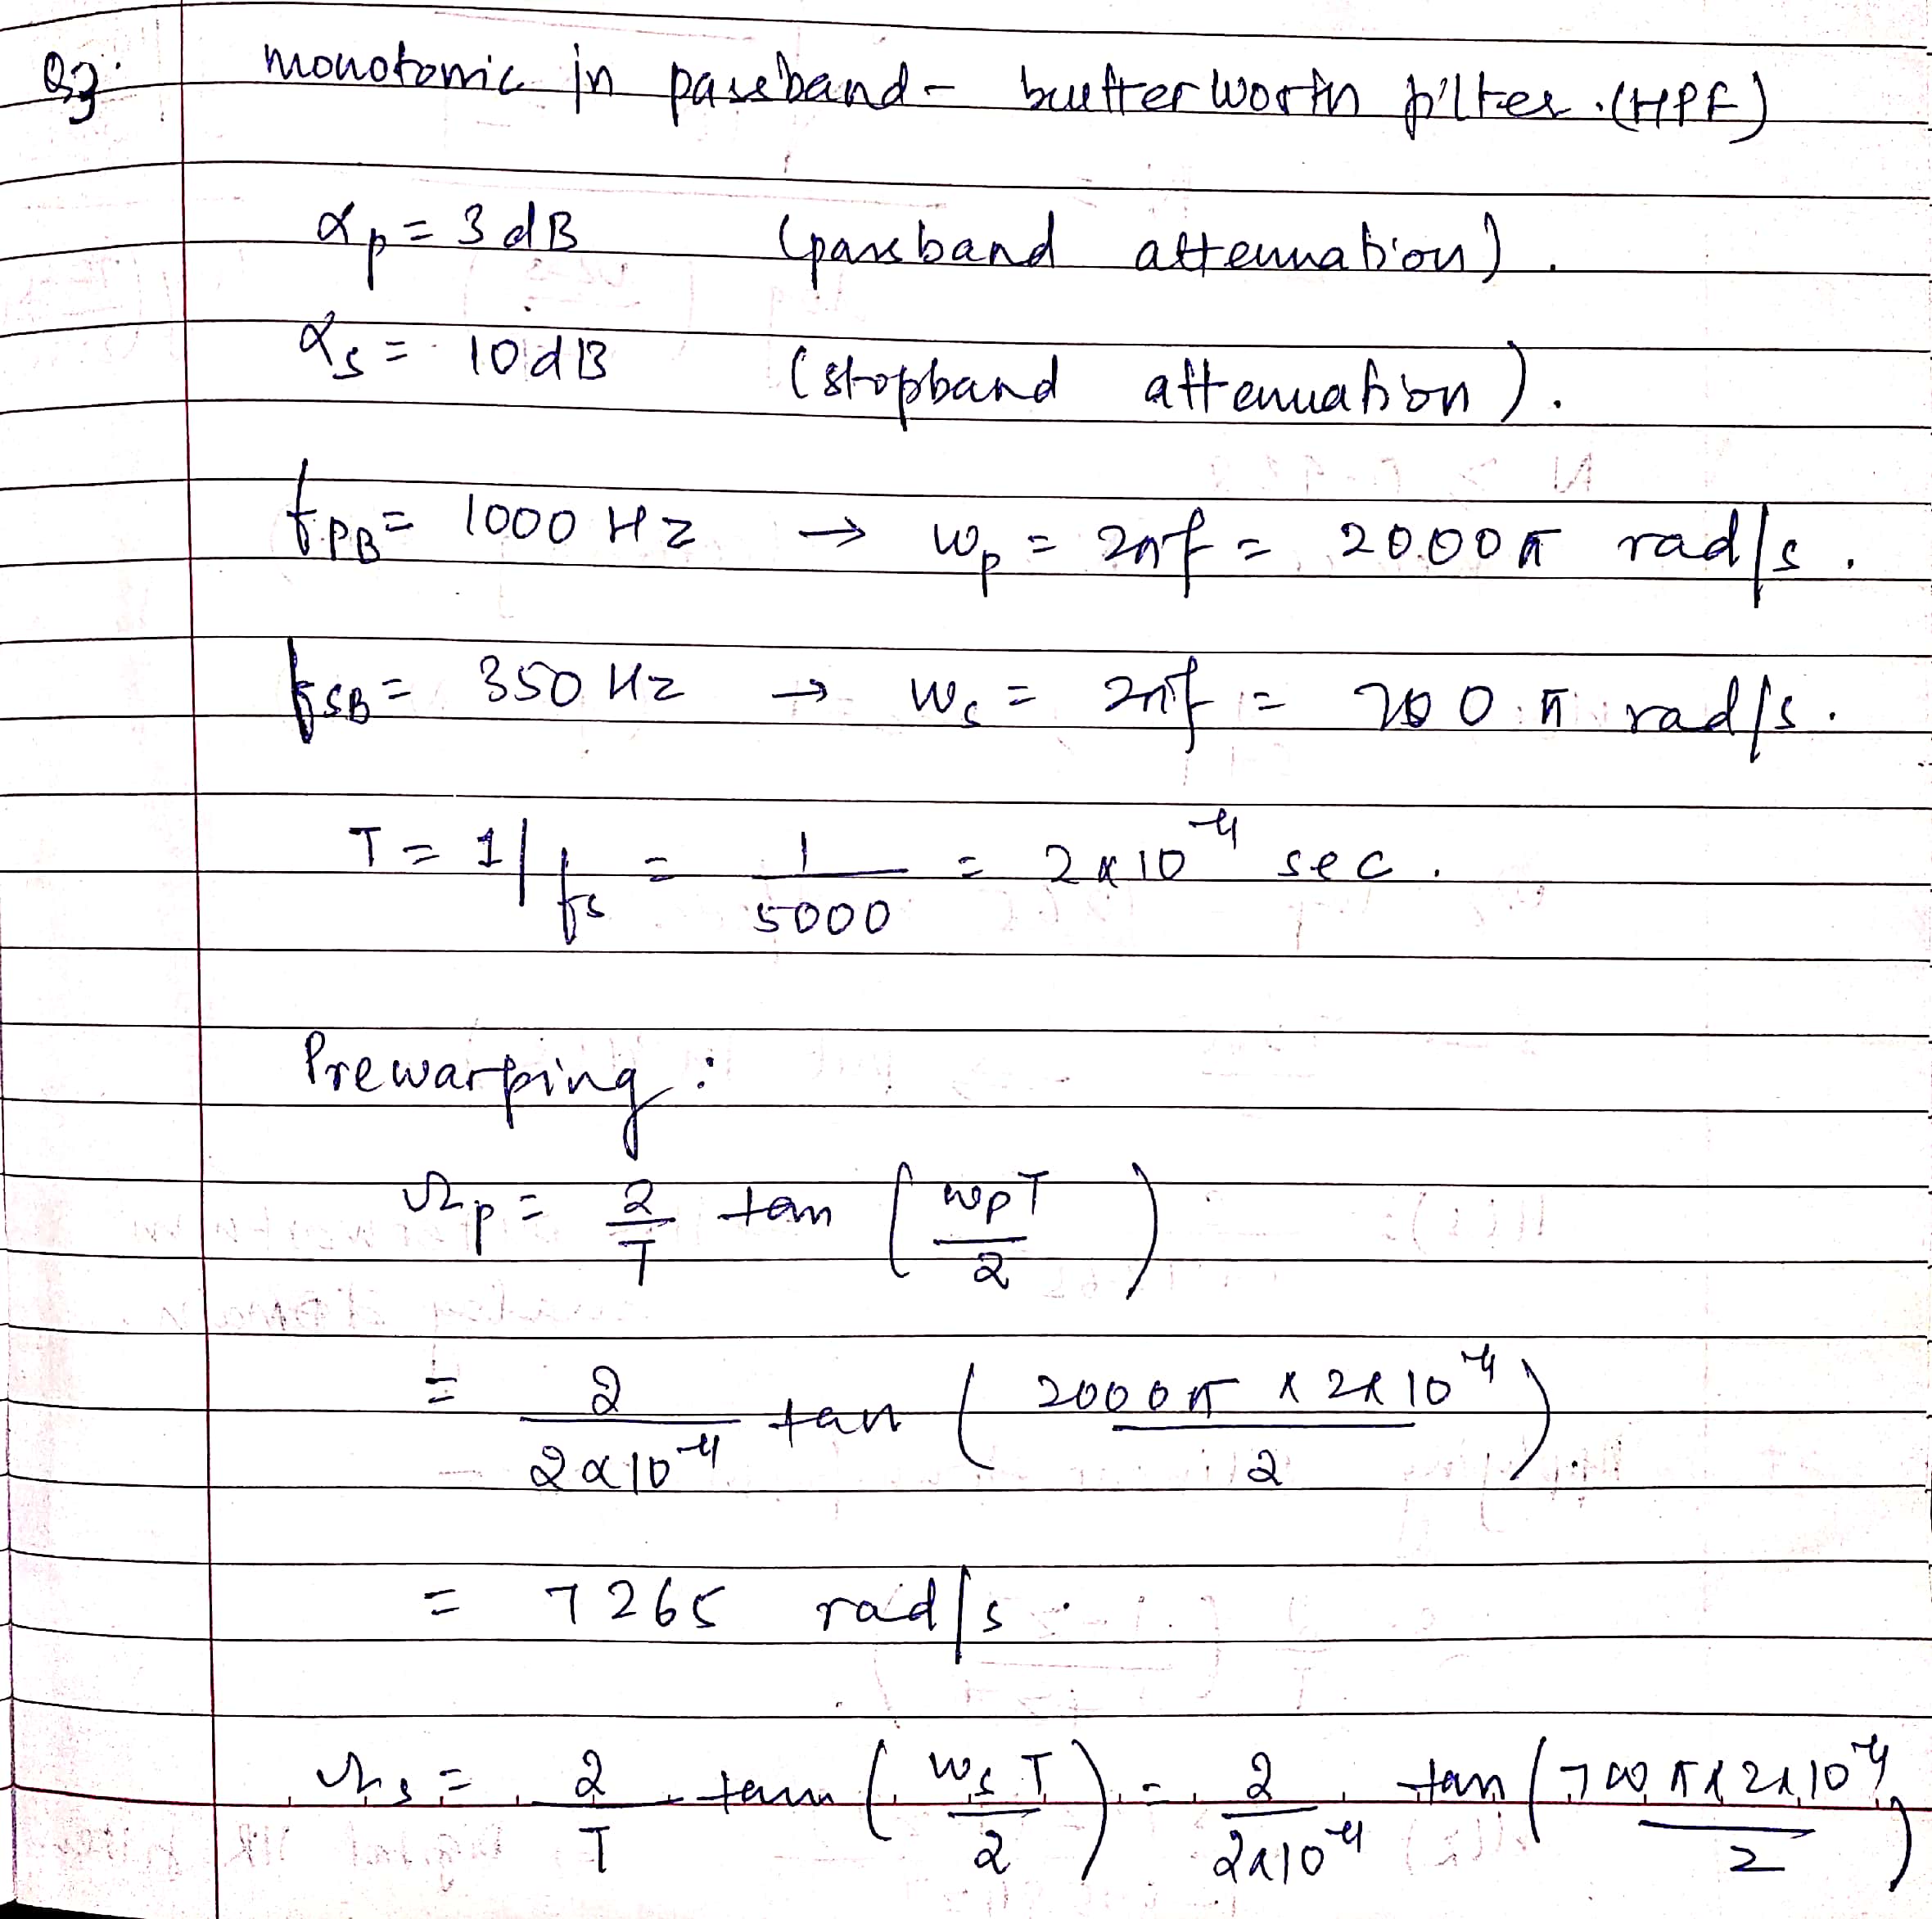 Q3. monotomic in passband - butterworth filter. (HPF)
αp = 3dB (passband attenuation).
αs = 10dB (stopband attenuation).
fPB = 1000 Hz → wp = 2πf = 2000π rad/s.
fSB = 350 Hz → ws = 2πf = 700π rad/s.
T = 1/fs = 1/5000 = 2x10^-4 sec.
Prewarping :
Ωp = 2/T tan (wpT/2)
= 2/(2x10^-4) tan (2000π x 2x10^-4 / 2).
= 7265 rad/s.
Ωs = 2/T tan (wsT/2) = 2/(2x10^-4) tan (700π x 2x10^-4 / 2)